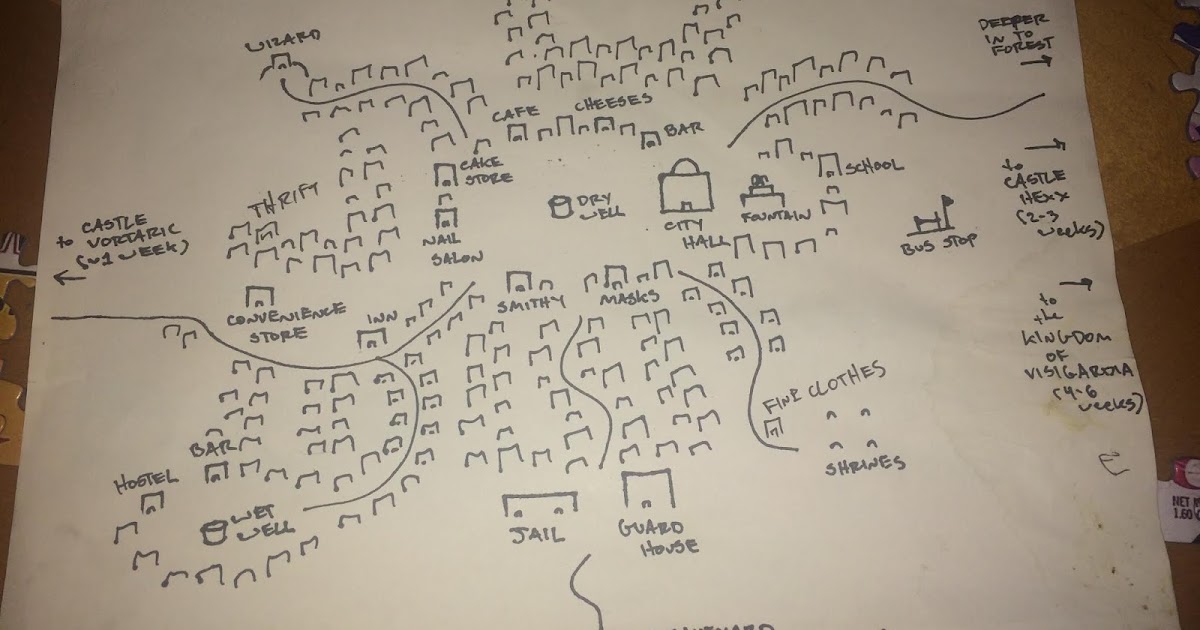 WIZARD
DEEPER
IN TO
FOREST
CAFE
CHEESES
BAR
CAKE
STORE
SCHOOL
to
CASTLE
HEXX
(2-3
weeks)
THRIFT
DRY
WELL
CITY
HALL
FOUNTAIN
BUS STOP
to CASTLE
VORTARIC
(~1 WEEK)
NAIL
SALON
CONVENIENCE
STORE
INN
SMITHY
MASKS
to
the
KINGDOM
OF
VISIGARDIA
(4-6
weeks)
FINE CLOTHES
BAR
HOSTEL
WET
WELL
SHRINES
JAIL
GUARD
HOUSE
NET
1.60